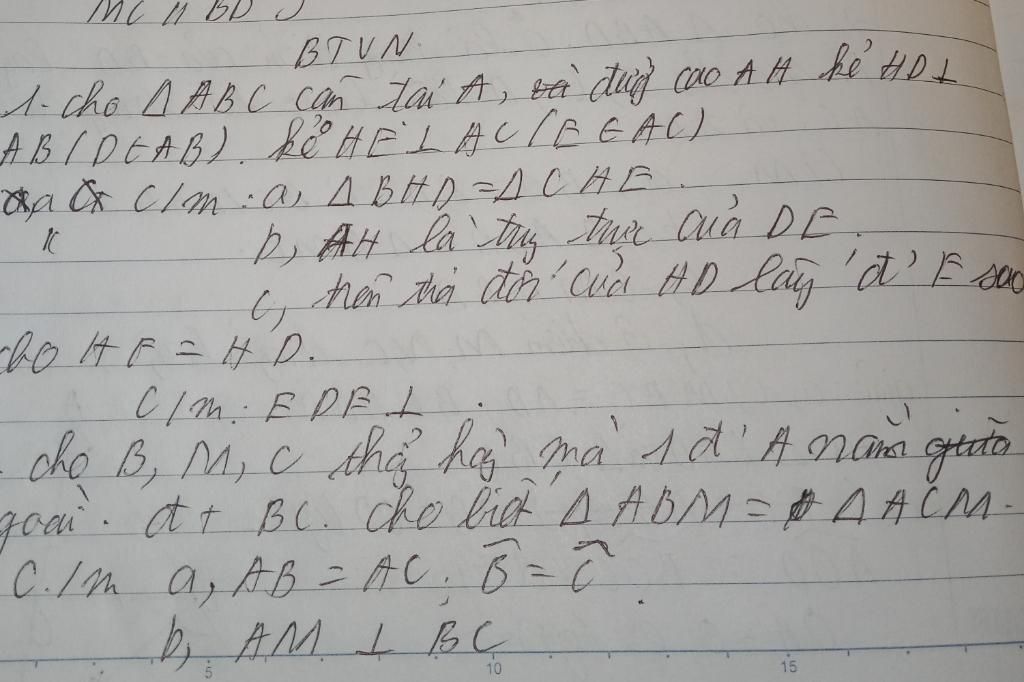 MC // BD
BTVN.
1. cho Δ ABC cân tại A, đường cao AH kẻ HD⊥
AB (D∈AB). kẻ HE ⊥ AC (E∈AC)
C/m : a, Δ BHD = Δ CHE.
b, AH là trung trực của DE.
c, trên tia đối của HD lấy đ' F sao
cho HF = HD.
C/m: EDF⊥.
cho B, M, C thẳng hàng mà 1 đ' A nằm giữa
ngoài. đt BC. cho biết Δ ABM = Δ ACM.
C./m a, AB = AC. B̂ = Ĉ
b, AM ⊥ BC
5 10 15